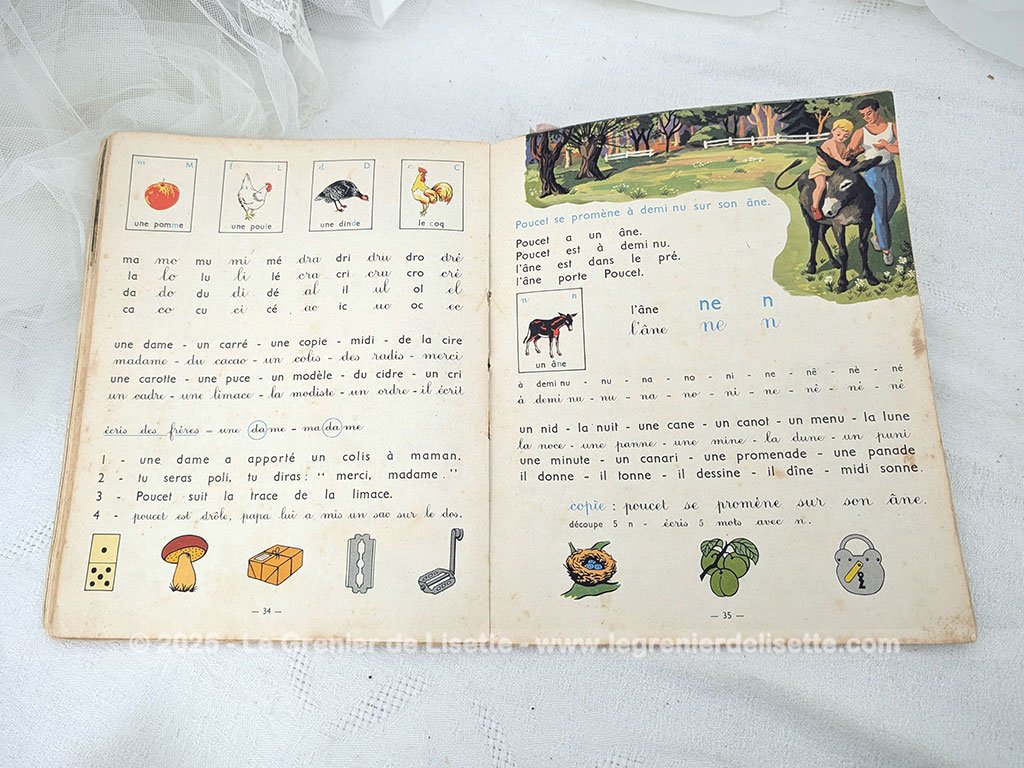 m M
une pomme
l L
une poule
d D
une dinde
c C
le coq
ma mo mu mi mé dra dri dru dro dré
la lo lu li lé cra cri cru cro cré
da do du di dé al il ul ol el
ca co cu ci cé ac ic uc oc ec
une dame - un carré - une copie - midi - de la cire
madame - du cacao - un colis - des radis - merci
une carotte - une puce - un modèle - du cidre - un cri
un cadre - une limace - la modiste - un ordre - il écrit
écris des frères - une dame - madame
1 - une dame a apporté un colis à maman.
2 - tu seras poli, tu diras : " merci, madame. "
3 - Poucet suit la trace de la limace.
4 - poucet est drôle, papa lui a mis un sac sur le dos.
- 34 -
Poucet se promène à demi nu sur son âne.
Poucet a un âne.
Poucet est à demi nu.
l'âne est dans le pré.
l'âne porte Poucet.
n n
un âne
l'âne ne n
l'âne ne n
à demi nu - nu - na - no - ni - ne - nê - nè - né
à demi nu - nu - na - no - ni - ne - nê - nè - né
un nid - la nuit - une cane - un canot - un menu - la lune
la noce - une panne - une mine - la dune - un puni
une minute - un canari - une promenade - une panade
il donne - il tonne - il dessine - il dîne - midi sonne.
copie : poucet se promène sur son âne.
découpe 5 n - écris 5 mots avec n.
- 35 -
© 2025 - Le Grenier de Lisette - www.legrenierdelisette.com